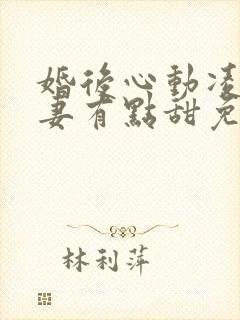 婚後心動凌
妻有點甜免
林利萍